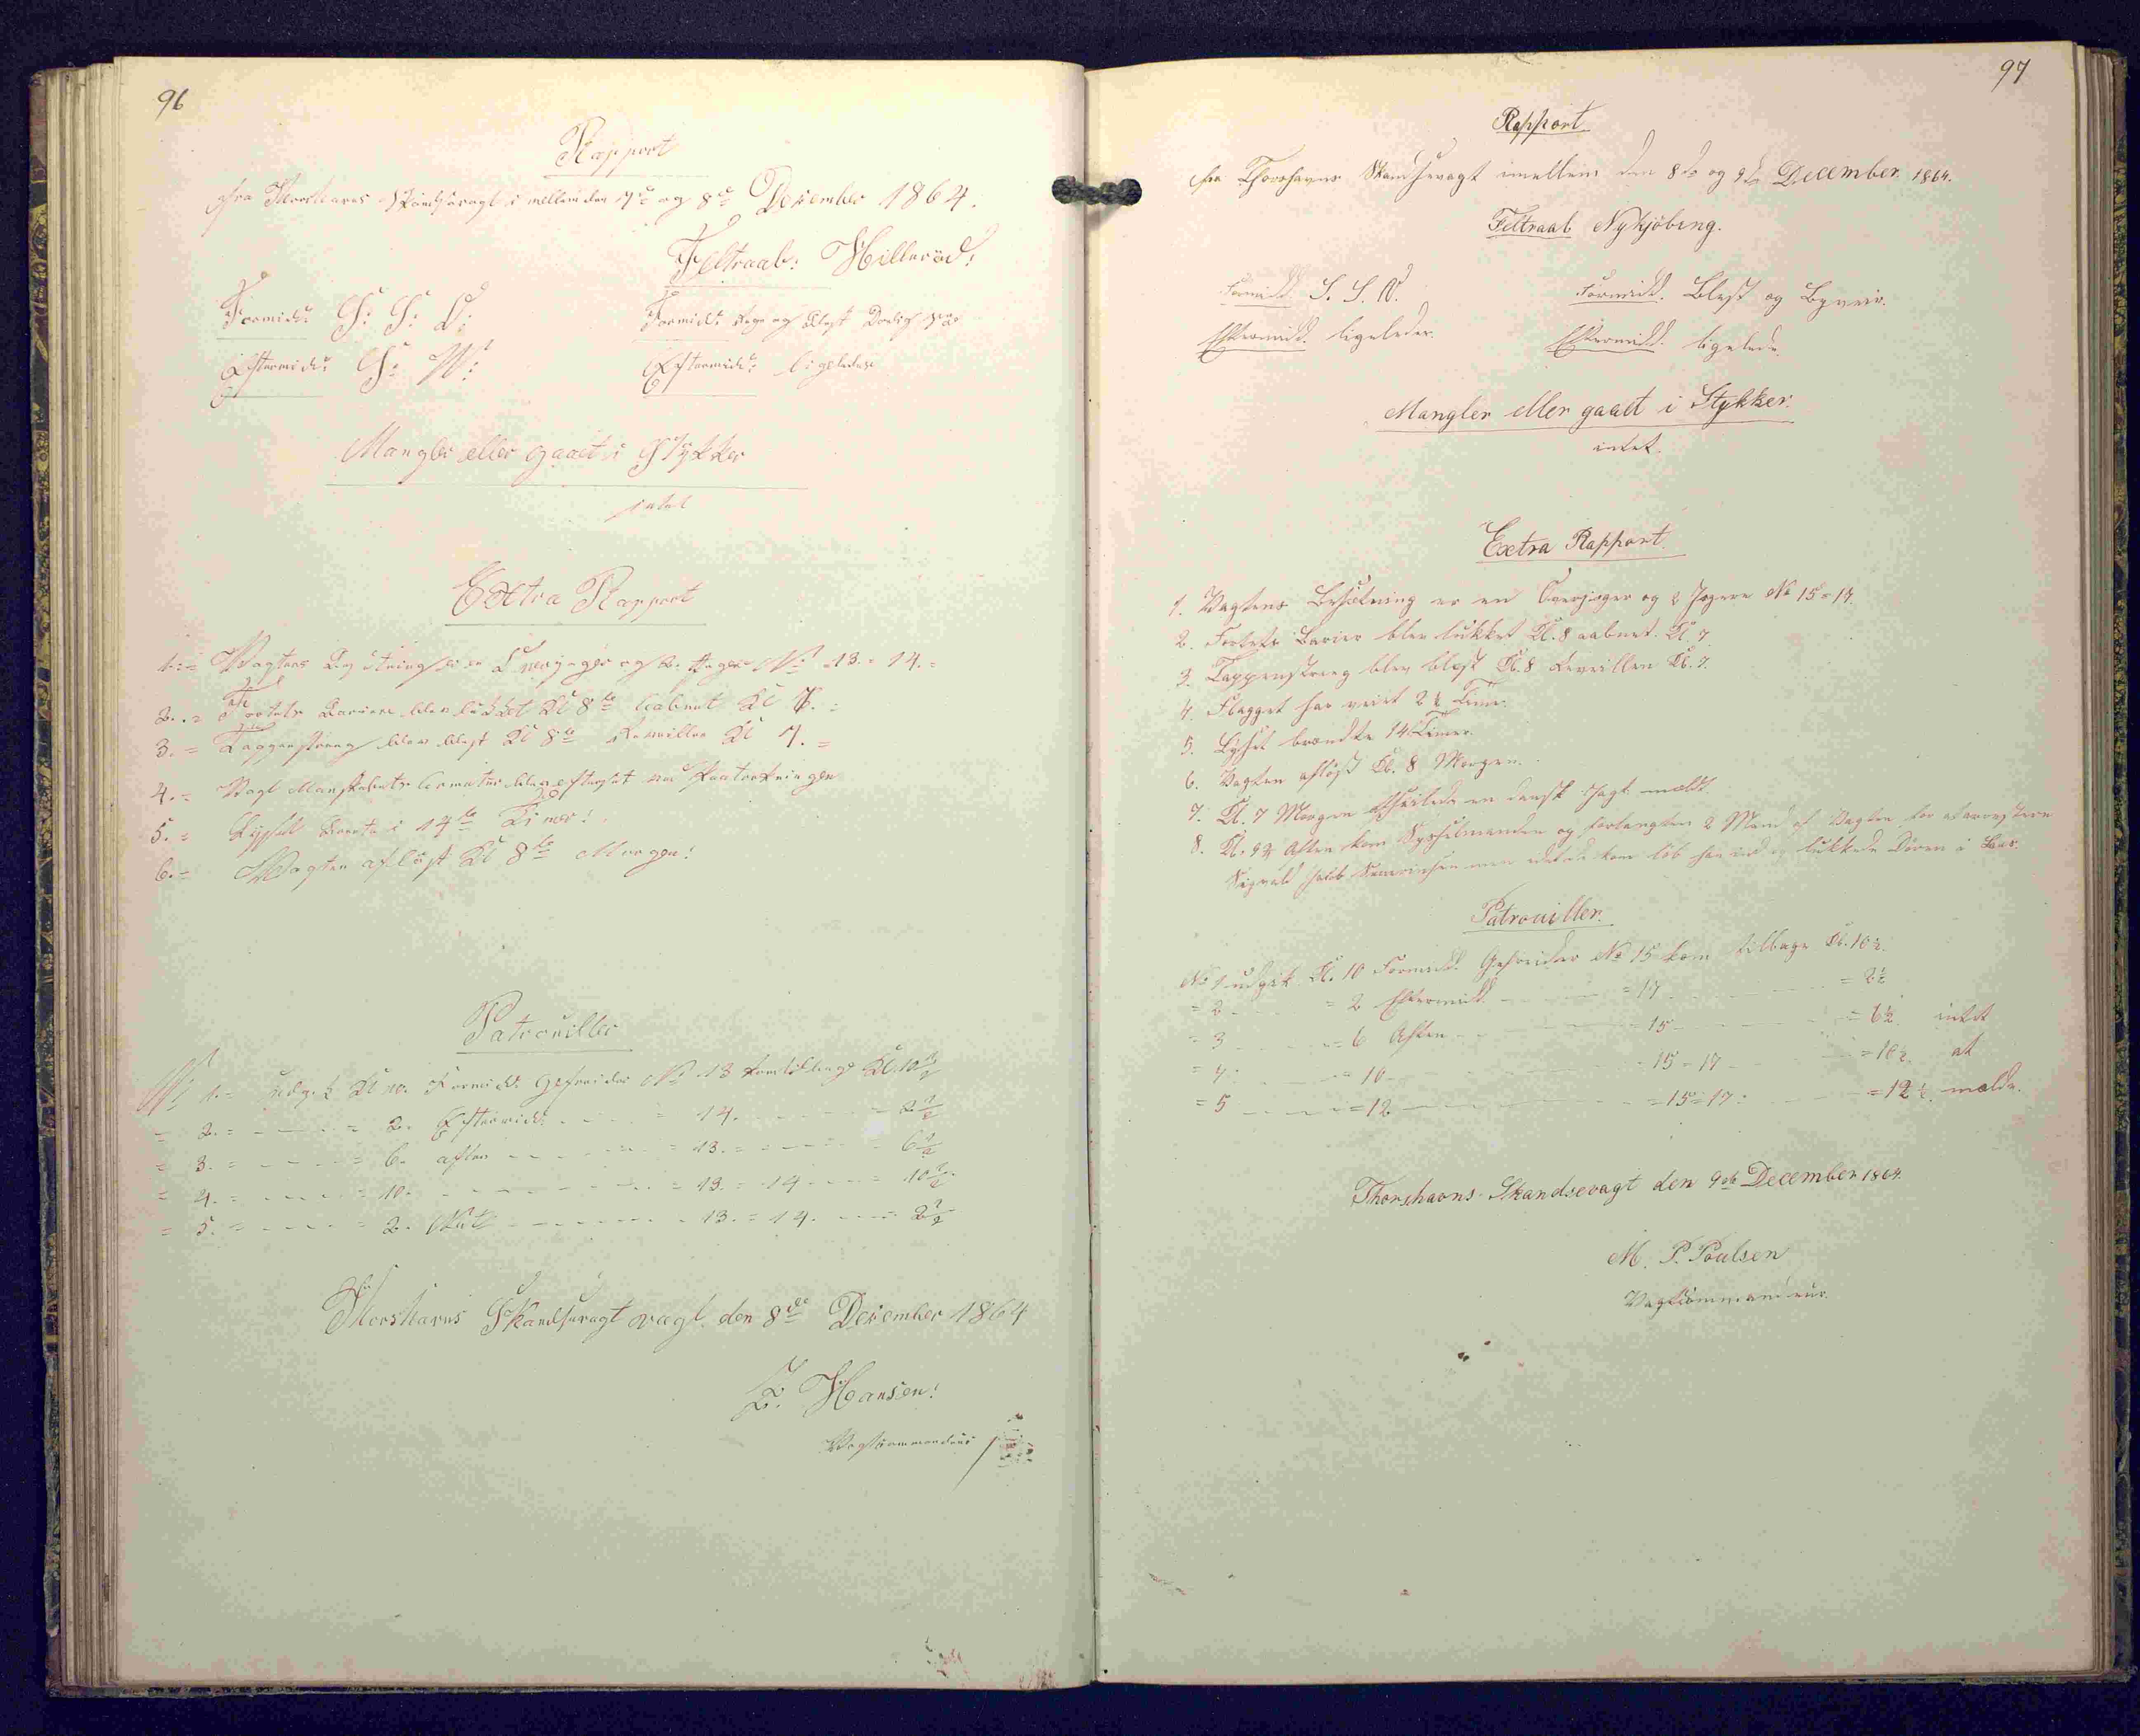 96
Rapport
fra Thorshavns Skandsevagt i mellem den 7de og 8de December 1864.
Feltraab: Hilleröd!
Formidd: S: S: O: Formidd: Regn og Blæst
Eftermidd: S: W: Eftermidd: Ligeledes
Mangler eller gaaet i Stykker
intet
Extra Rapport
1. = Vagtens Besætning er en Overjæger og 2. Jæger No 13. = 14. =
2. = Fortets Bariere blev lukket Kl 8te aabnet Kl 7. =
3. = Tappenstreng blev blæst Kl 8te Reveillen Kl 7. =
4. = Vagt Mandskabets Armatur blev efterseet
5. = Lyset brænte i 14te Timer!
6. = Vagten aflöst Kl 8te Morgen!
Patrouiller
No 1. = udgik Kl 10. Formidd: Gefreider No 13 kom tilbage Kl. 10½
= 2. = = 2. Eftermidd = 14. = 2½
= 3. = = 6. Aften = 13. = 6½
= 4. = = 10. = 13. = 14 = 10½
= 5. = = 2. Nat = 13. = 14. = 2½
Thorshavns Skandsevagt vagt. den 8de December 1864
Hansen!
Vagtcommandeur
97
Rapport
fra Thorshavns Skandsevagt imellem den 8de og 9de December 1864.
Feltraab Nykjöbing.
Formidd. S. S. V. Formidd. Blæst og Bygveir.
Eftermidd. ligeledes. Eftermidd. ligelede.
Mangler eller gaaet i Stykker.
intet.
Extra Rapport.
1. Vagtens Besætning er en Overjæger og 2 Jægere No 15 = 17.
2. Fortets Barier blev lukket Kl. 8 aabnet Kl. 7
3. Tappenstreng blev blæst Kl. 8 Reveillen Kl. 7.
4. Flagget har veiet 2½ Time.
5. Lyset brændte 14 Timer.
6. Vagten aflöst Kl. 8 Morgen.
7. Kl. 7 Morgen afseilede en dansk Jagt
8. Kl. 9½ Aften kom Sysselmanden og forlangte 2 Mand af Vagten for at arrestere
Sigvald Jacob men kom löb han ind og lukkede Dören i Laas.
Patrouiller.
No 1 udgik Kl. 10 Formidd. Gefreider No 15 kom tilbage Kl. 10½.
= 2 = 2 Eftermidd. = 17 = 2½
= 3 = 6 Aften = 15 = 6½ intet
= 4 = 10 = 15 = 17 = 10½ at
= 5 = 12 = 15 = 17 = 12½ melde.
Thorshavns Skandsevagt den 9de December 1864.
M. P. Poulsen
Vagtcommandeur.